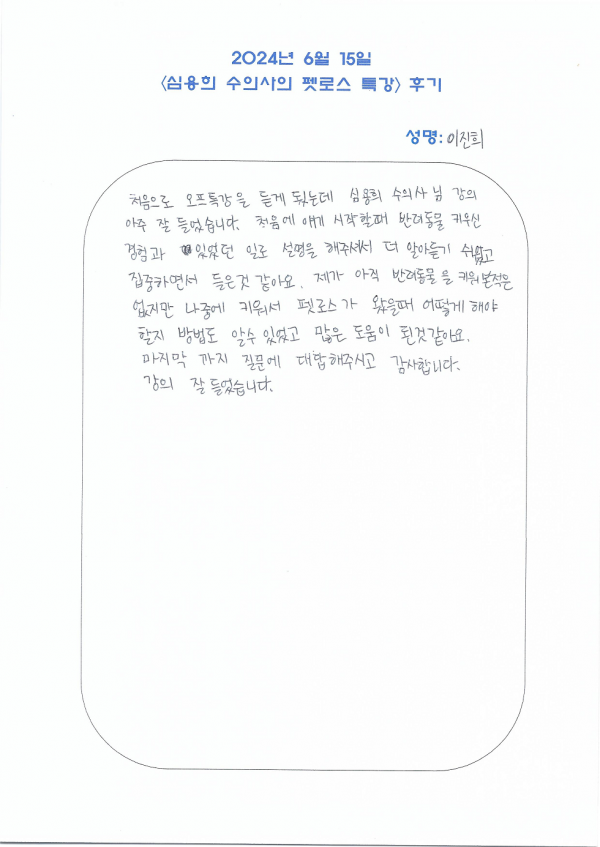 2024년 6월 15일
<심용희 수의사의 펫로스 특강> 후기
성명: 이진희
처음으로 오프특강을 듣게 됬는데 심용희 수의사님 강의
아주 잘 들었습니다. 처음에 얘기 시작할때 반려동물 키우신
경험과 있었던 일로 설명을 해주셔서 더 알아듣기 쉬웠고
집중하면서 들은것 같아요. 제가 아직 반려동물을 키워본적은
없지만 나중에 키워서 펫로스가 왔을때 어떻게 해야
할지 방법도 알수 있었고 많은 도움이 된것같아요.
마지막 까지 질문에 대답해주시고 감사합니다.
강의 잘 들었습니다.